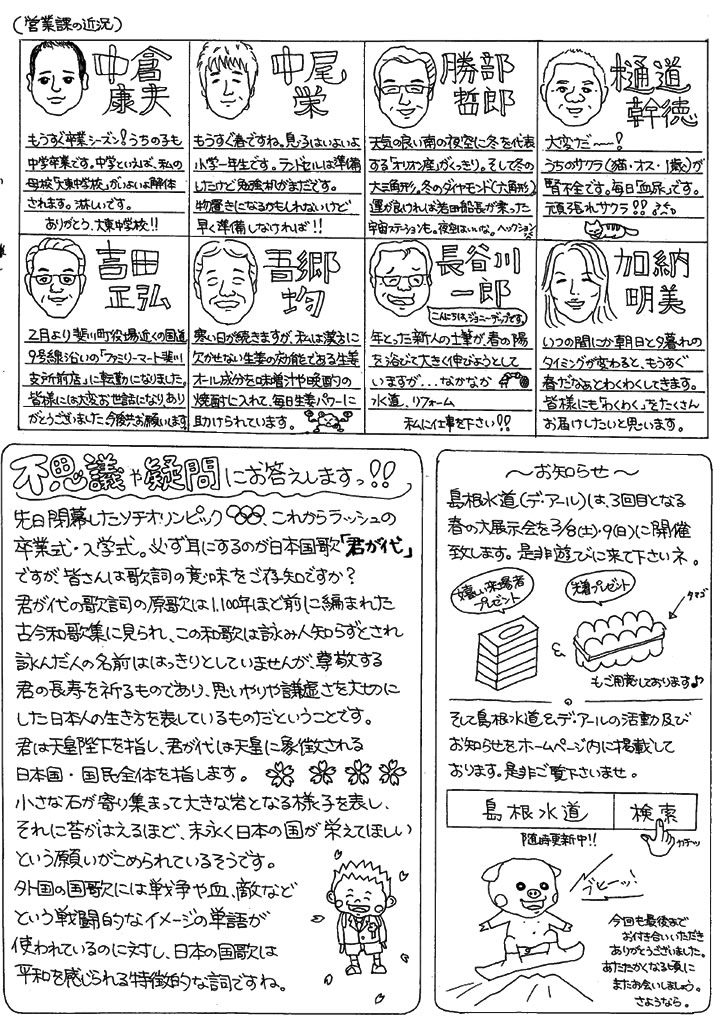 (営業課の近況)
中倉
康夫
もうすぐ卒業シーズン!うちの子も
中学卒業です。中学といえば、私の
母校「大東中学校」がいよいよ解体
されます。淋しいです。
ありがとう、大東中学校!!
中尾
栄
もうすぐ春ですね。見ろはいよいよ
小学一年生です。ランドセルは準備
したけど勉強机がまだです。
物置きになるかもしれないけど
早く準備しなければ!!
勝部
哲郎
天気の良い南の夜空に冬を代表
する「オリオン座」がくっきり。そして冬の
大三角形。冬のダイヤモンド(六角形)
運が良ければ若田船長が乗った
宇宙ステーションも。夜空はいいな。ヘックション
樋道
幹徳
大変だ〜〜!
うちのサクラ(猫・オス・1歳)が
腎不全です。毎日「血尿」です。
頑張れサクラ!!
吉田
正弘
2月より斐川町役場近くの国道
9号線沿いの「ファミリーマート斐川
支所前店」に転勤になりました。
皆様には大変お世話になりあり
がとうございました 今後共お願いします
吾郷
均
寒い日が続きますが、私は漢方に
欠かせない生薬の効能である生姜
オール成分を味噌汁や晩酌の
焼酎に入れて、毎日生姜パワーに
助けられています。
長谷川
一郎
こんにちは、ジョニーデップです。
年とった新人の土筆が、春の陽
を浴びて大きく伸びようとして
いますが...なかなか
水道、リフォーム
私に仕事を下さい!!
加納
明美
いつの間にか朝日と夕暮れの
タイミングが変わると、もうすぐ
春だなぁとわくわくしてきます。
皆様にも「わくわく」をたくさん
お届けしたいと思います。
不思議や疑問にお答えしますっ!!
先日閉幕したソチオリンピック、これからラッシュの
卒業式・入学式。必ず耳にするのが日本国歌「君が代」
ですが皆さんは歌詞の意味をご存知ですか?
君が代の歌詞の原歌は1,100年ほど前に編まれた
古今和歌集に見られ、この和歌は詠み人知らずとされ
詠んだ人の名前ははっきりとしていませんが、尊敬する
君の長寿を祈るものであり、思いやりや謙虚さを大切に
した日本人の生き方を表しているものだということです。
君は天皇陛下を指し、君が代は天皇に象徴される
日本国・国民全体を指します。
小さな石が寄り集まって大きな岩となる様子を表し、
それに苔がはえるほど、末永く日本の国が栄えてほしい
という願いがこめられているそうです。
外国の国歌には戦争や血、敵など
という戦闘的なイメージの単語が
使われているのに対し、日本の国歌は
平和を感じられる特徴的な詞ですね。
〜お知らせ〜
島根水道(デ・アール)は、3回目となる
春の大展示会を3/8(土)・9(日)に開催
致します。是非遊びに来て下さいネ。
嬉しい来場者
プレゼント
先着プレゼント
タマゴ
&
もご用意しております♪
そして島根水道&デ・アールの活動及び
お知らせをホームページ内に掲載して
おります。是非ご覧下さいませ。
島根水道 検索
随時更新中!!
カチッ
ブヒーッ!
今回も最後まで
お付き合いいただき
ありがとうございました。
あたたかくなる頃に
またお会いしましょう。
さようなら。